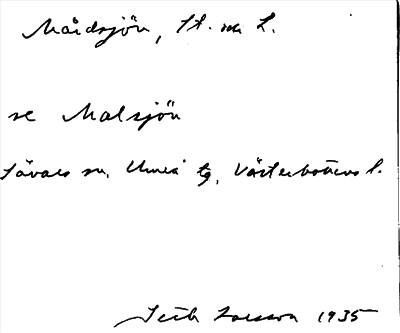 Mårdsjön, St. o. L.
se Malsjön
Sävars sn, Umeå tg, Västerbottens l.
Larsson 1935